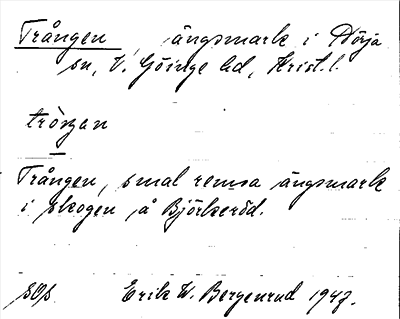 Trången ängsmark i Dörja
sn, V. Göinge hd, Krist. l.
tròŋan
Trången, smal remsa ängsmark
i skogen å Björkeröd.
sOs. Erik W. Bergenrud 1947.